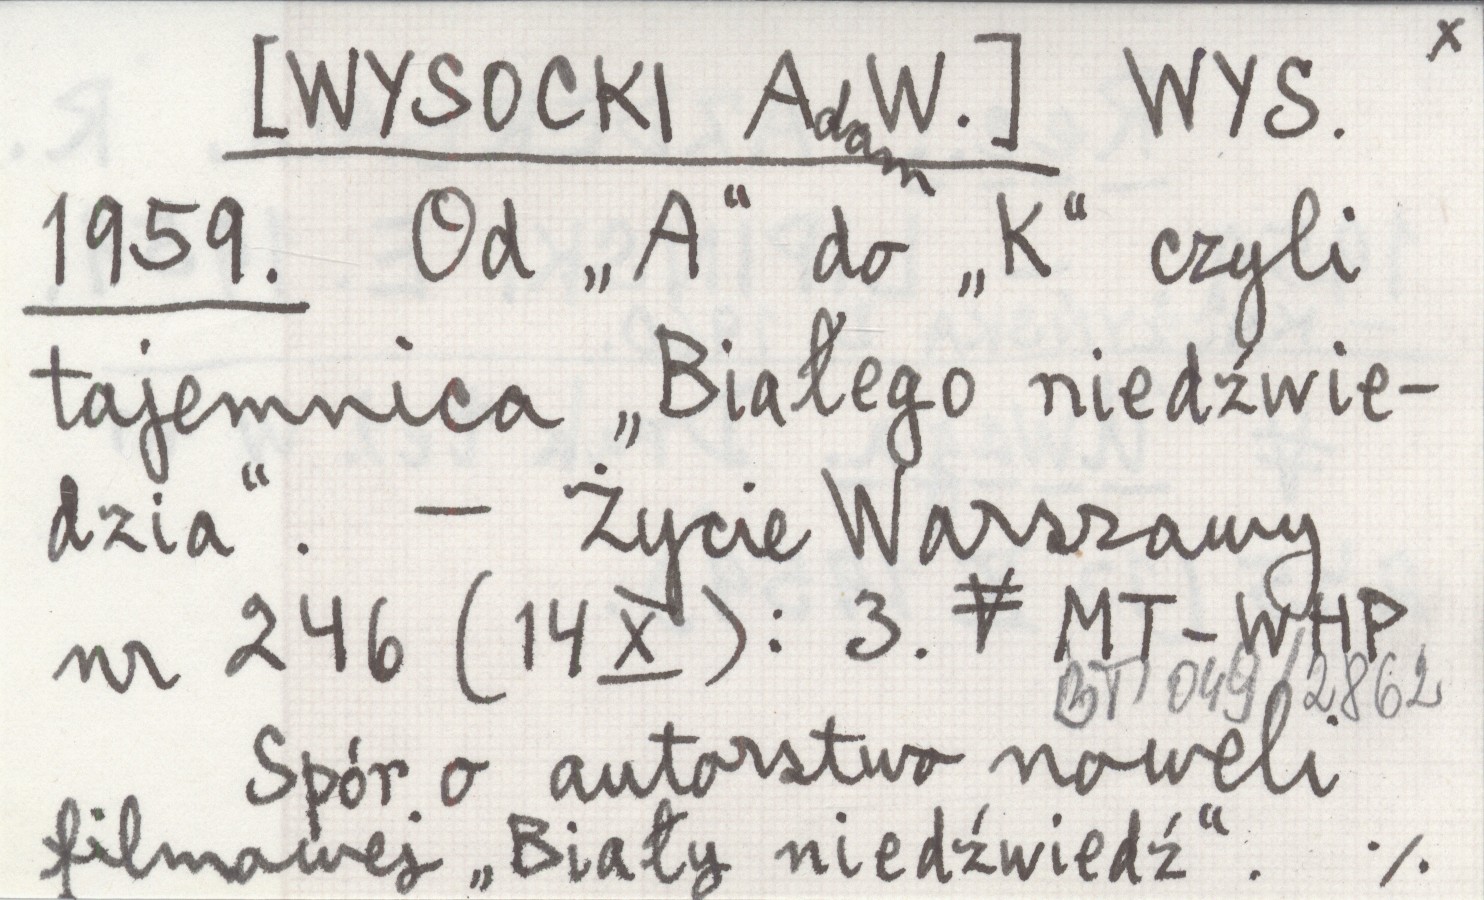 x
[WYSOCKI Adam W.] WYS.
1959. Od „A“ do „K“ czyli
tajemnica „Białego niedźwie-
dzia“. — Życie Warszawy
nr 246 (14 X): 3. MT-WHP
BT 049/2862
Spór o autorstwo noweli
filmowej „Biały niedźwiedź“. ./.